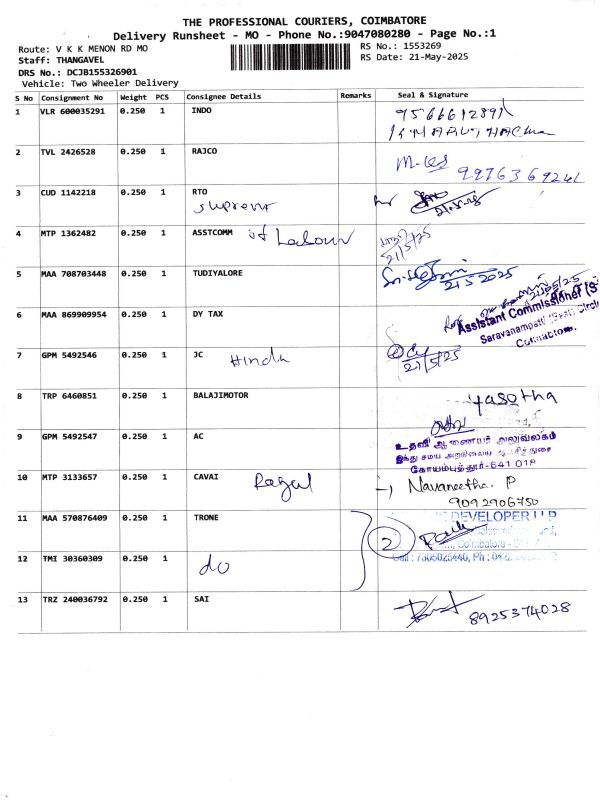 THE PROFESSIONAL COURIERS, COIMBATORE
Delivery Runsheet - MO - Phone No.:9047080280 - Page No.:1
Route: V K K MENON RD MO
RS No.: 1553269
Staff: THANGAVEL
RS Date: 21-May-2025
DRS No.: DCJB155326901
Vehicle: Two Wheeler Delivery
S No Consignment No Weight PCS Consignee Details Remarks Seal & Signature
1 VLR 600035291 0.250 1 INDO
2 TVL 2426528 0.250 1 RAJCO 9976369241
3 CUD 1142218 0.250 1 RTO
21.5.25
4 MTP 1362482 0.250 1 ASSTCOMM Labour
21/5/25
5 MAA 708703448 0.250 1 TUDIYALORE 21 5 2025
6 MAA 869909954 0.250 1 DY TAX
Assistant Commissioner (S
Saravanampatti (East) Circle
Coimbatore.
7 GPM 5492546 0.250 1 JC Hindu
21/5/25
8 TRP 6460851 0.250 1 BALAJIMOTOR Yasotha
9 GPM 5492547 0.250 1 AC
உதவி ஆணையர் அலுவலகம்
இந்து சமய அறநிலைய
கோயம்புத்தூர்-641 018
10 MTP 3133657 0.250 1 CAVAI Navaneetha. P
9092906750
11 MAA 570876409 0.250 1 TRONE 2
DEVELOPER LLP
12 TMI 30360309 0.250 1 do
13 TRZ 240036792 0.250 1 SAI 8925374028